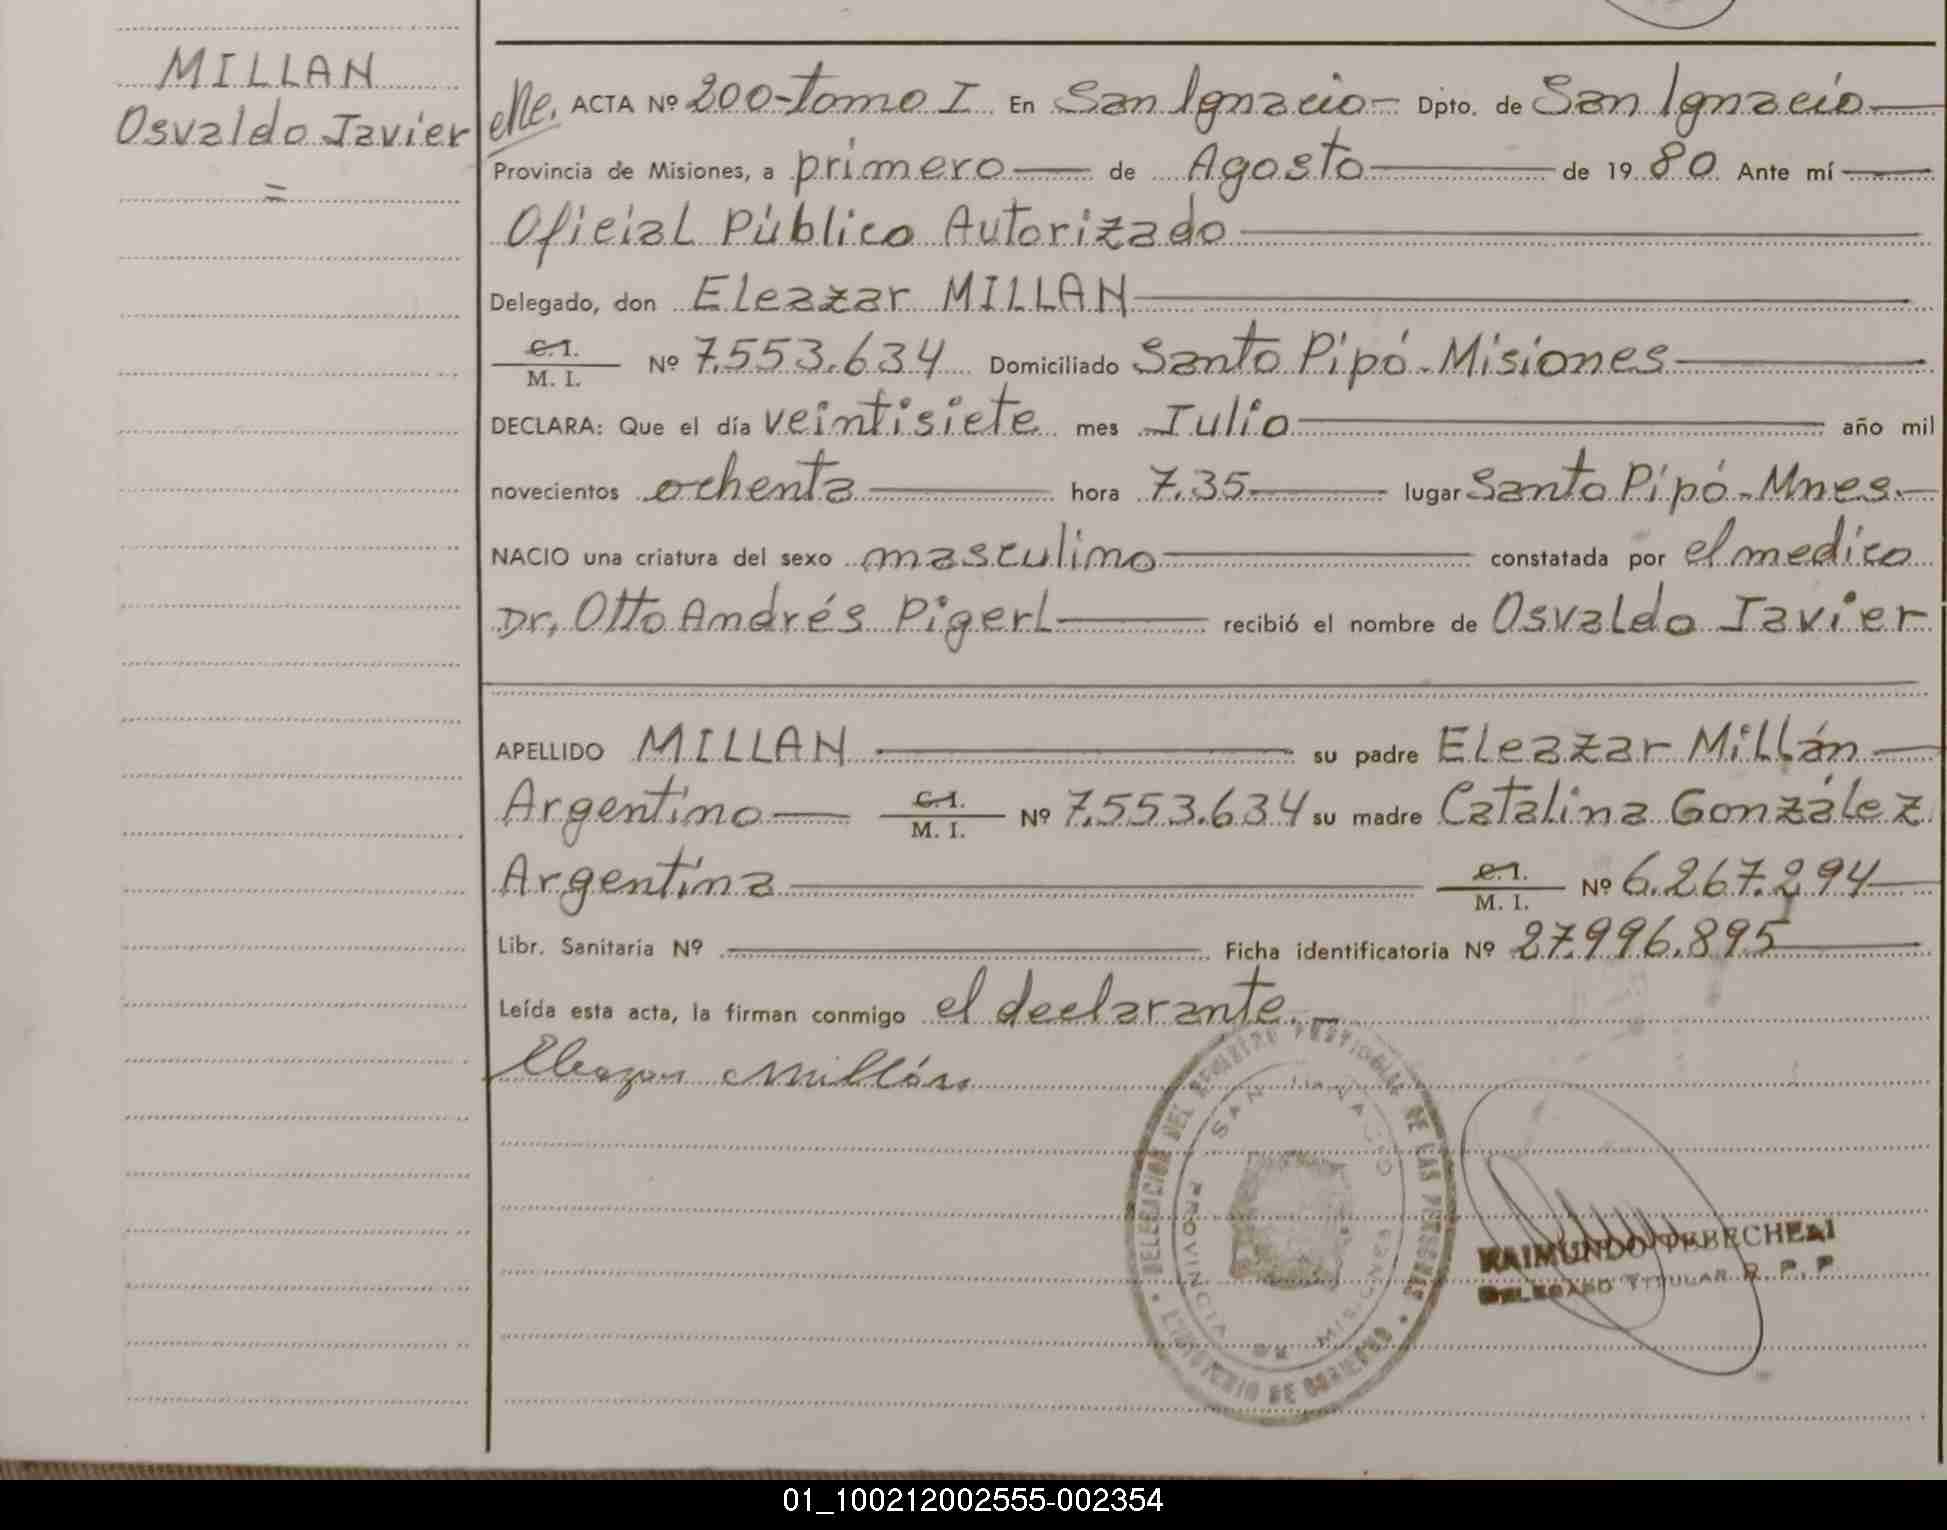 MILLAN
Osvaldo Javier
=
ACTA Nº 200-Tomo I En San Ignacio- Dpto. de San Ignacio
Provincia de Misiones, a primero de Agosto de 1980 Ante mí
Oficial Público Autorizado
Delegado, don Eleazar MILLAN
C.I.
M. I. Nº 7.553.634 Domiciliado Santo Pipó-Misiones
DECLARA: Que el día veintisiete mes Julio año mil
novecientos ochenta hora 7.35 lugar Santo Pipó-Mnes.
NACIO una criatura del sexo masculino constatada por el medico
Dr, Otto Andrés Pigerl recibió el nombre de Osvaldo Javier
APELLIDO MILLAN su padre Eleazar Millán
Argentino C.I. M. I. Nº 7.553.634 su madre Catalina González
Argentina C.I. M. I. Nº 6.267.294
Libr. Sanitaria Nº Ficha identificatoria Nº 27.996.895
Leída esta acta, la firman conmigo el declarante.-
Eleazar Millán
DELEGACION DEL REGISTRO DE LAS PERSONAS
MINISTERIO DE GOBIERNO
SAN IGNACIO
PROVINCIA DE MISIONES
RAIMUNDO
DELEGADO TITULAR R. P. P
01_100212002555-002354